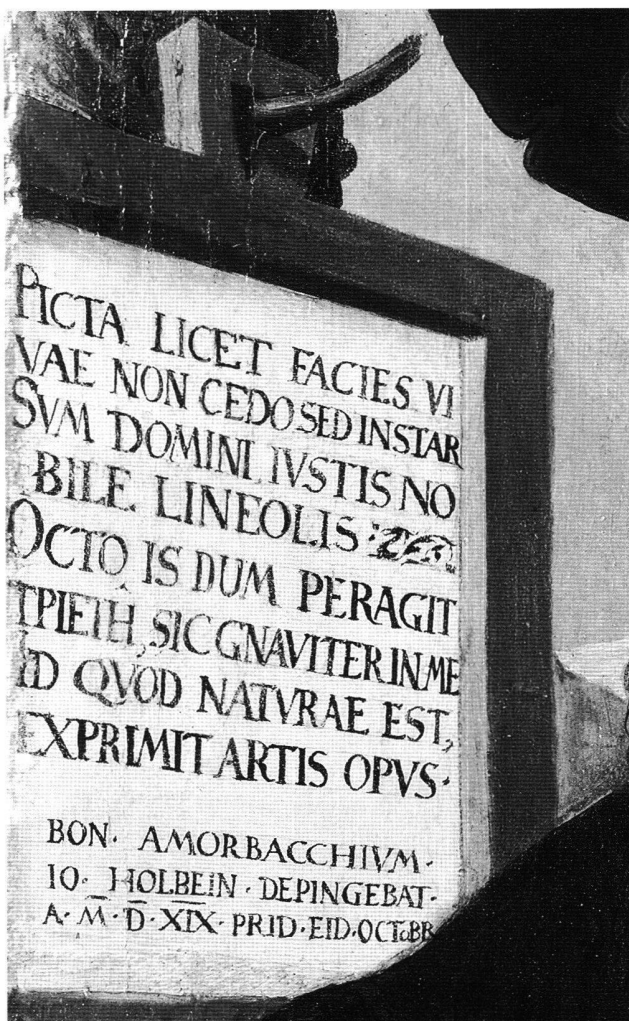 PICTA LICET FACIES VI
VAE NON CEDO SED INSTAR
SVM DOMINI IVSTIS NO
BILE LINEOLIS
OCTO IS DUM PERAGIT
ΤΡΙΕΤΗ, SIC GNAVITER IN ME
ID QVOD NATVRAE EST,
EXPRIMIT ARTIS OPVS·
BON· AMORBACCHIVM·
IO· HOLBEIN· DEPINGEBAT·
A· M̅· D̅· X̅I̅X̅· PRID· EID· OCTOBR